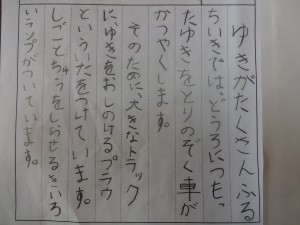 ゆきがたくさんふる
ちいきでは、どうろにつもっ
たゆきをとりのぞく車が
かつやくします。
そのために、大きなトラック
に、ゆきをおしのけるプラウ
といういたをつけています。
しごとちゅうをしらせるきいろ
いランプがついています。